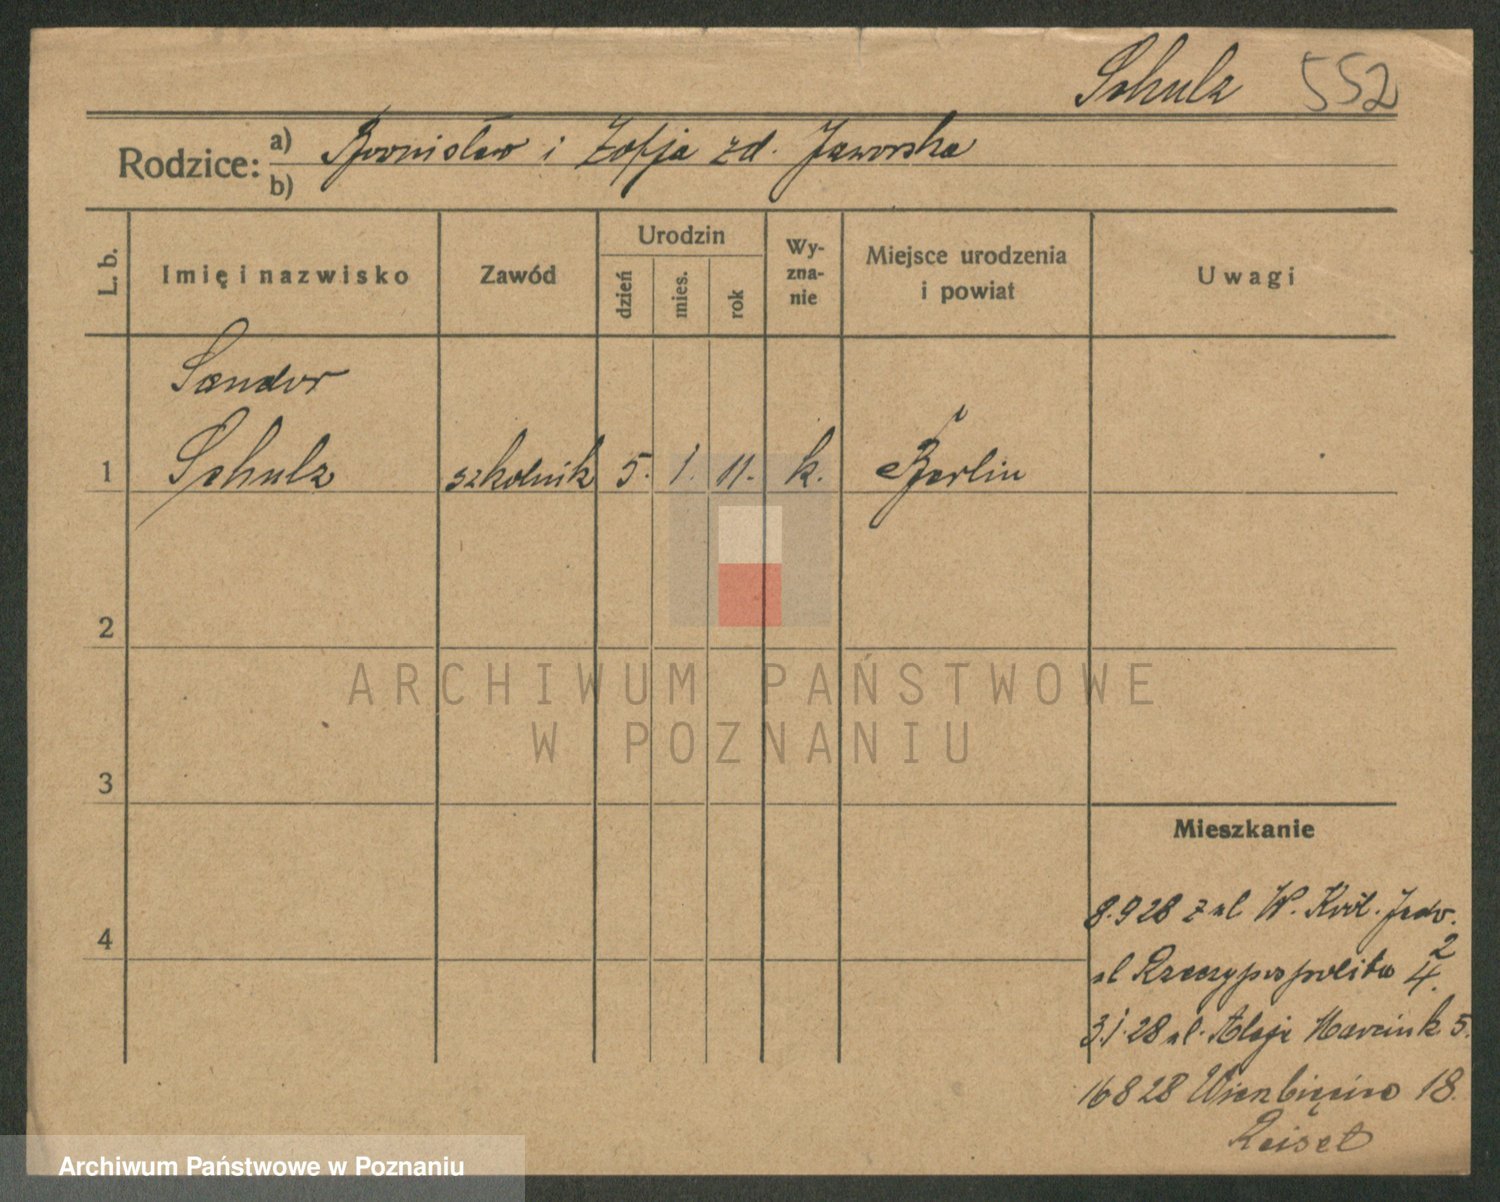 Schulz 552
Rodzice: a) Bronisław i Zofja zd. Jaworska
b)
L. b.
Imię i nazwisko
Zawód
Urodzin
dzień
mies.
rok
Wy-
zna-
nie
Miejsce urodzenia
i powiat
Uwagi
Sandor
1 Schulz szkolnik 5. 1. 11. k. Berlin
2
3
4
ARCHIWUM PAŃSTWOWE
W POZNANIU
Mieszkanie
8.9 28 z ul W. Król. Jadw.
2
ul Rzeczypospolita 4.
3.1.28 ul. Aleje Marcink. 5.
16 8 28 Wierzbięcice 18.
Archiwum Państwowe w Poznaniu